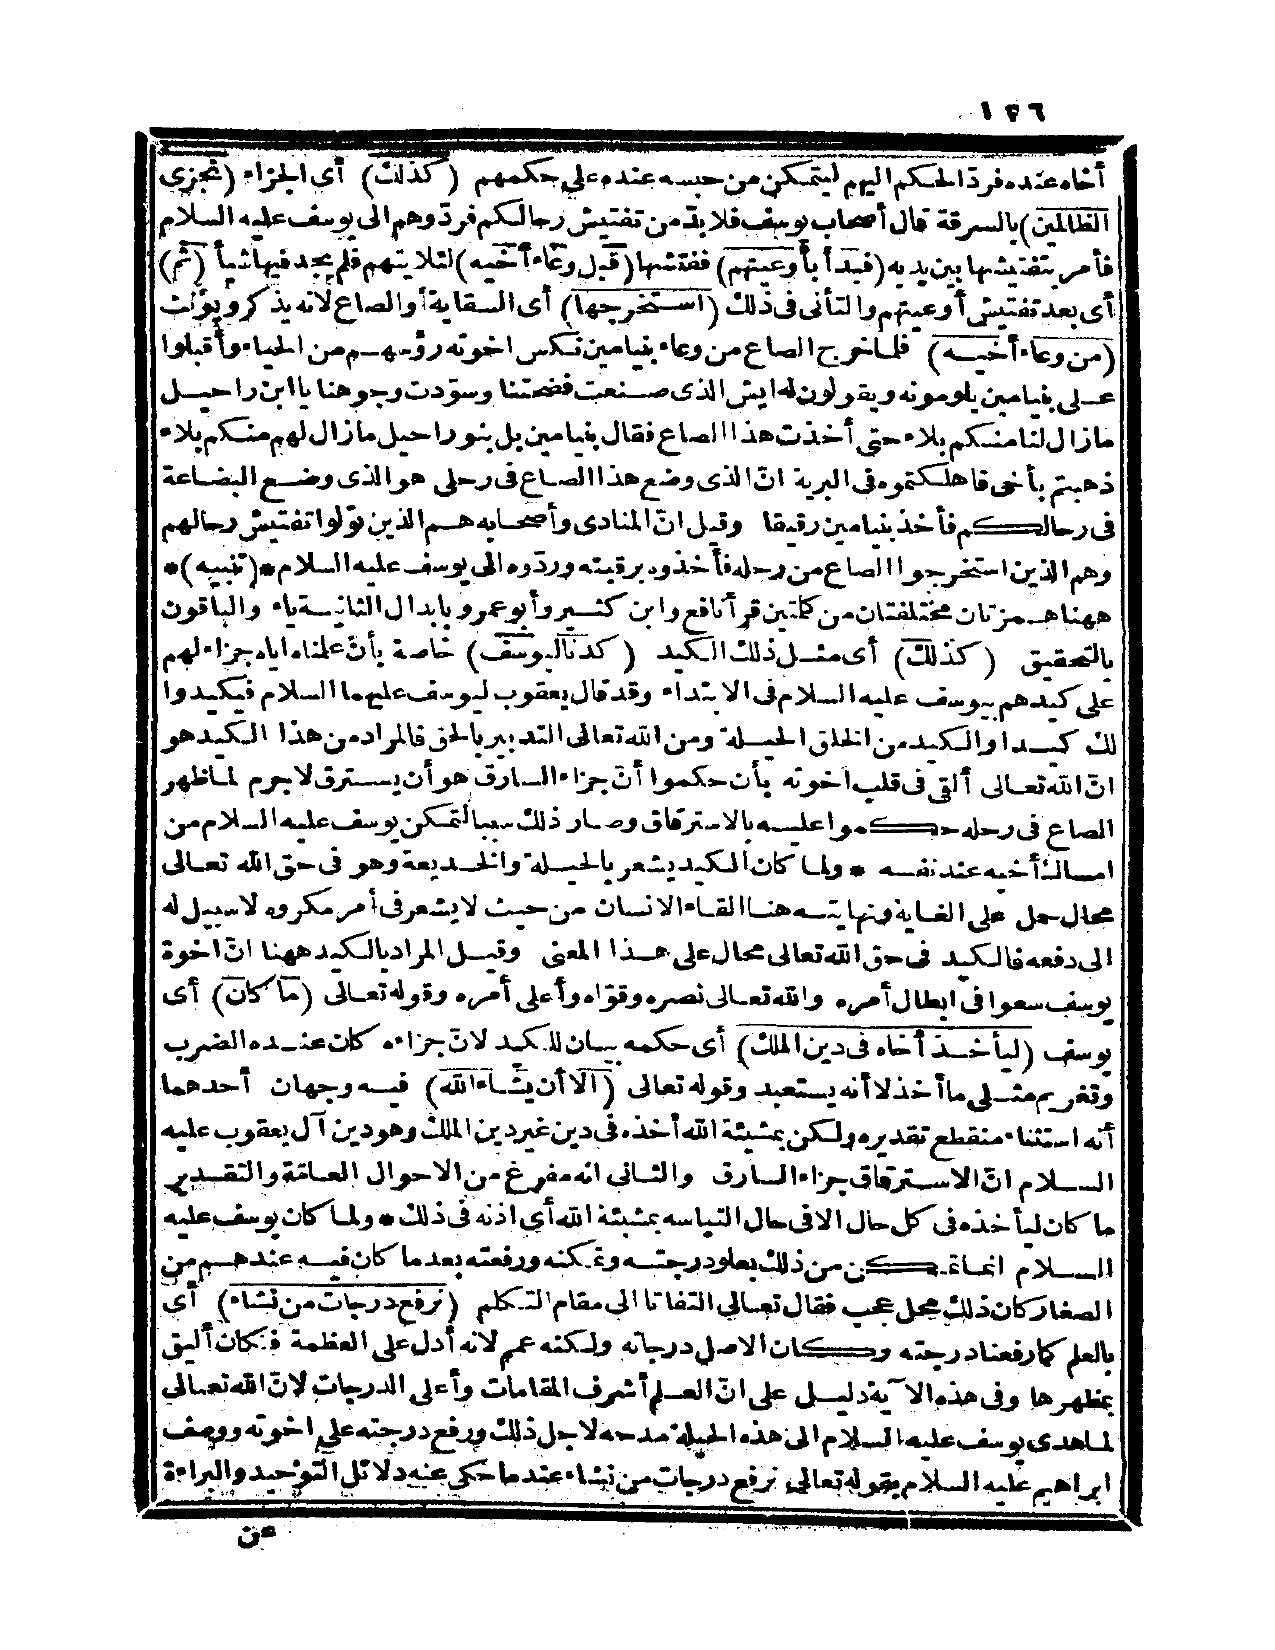 ١٢٦
أخاه عنده فردّ الحكم اليهم ليتمكن من حبسه عنده على حكمهم (كذلك) أى الجزاء (نجزى
الظالمين) بالسرقة قال أصحاب يوسف فلا بدّ من تفتيش رحالكم فردّوهم الى يوسف عليه السلام
فأمر بتفتيشها بين يديه (فبدأ بأوعيتهم) ففتشها (قبل وعاء أخيه) لئلا يتهم فلم يجد فيها شيأ (ثم)
أى بعد تفتيش أوعيتهم والتأنى فى ذلك (استخرجها) أى السقاية أو الصاع لانه يذكر ويؤنث
(من وعاء أخيه) فلما خرج الصاع من وعاء بنيامين نكس اخوته رؤسهم من الحياء وأقبلوا
على بنيامين يلومونه ويقولون له ايش الذى صنعت فضحتنا وسوّدت وجوهنا يا ابن راحيل
مازال لنا منكم بلاء حتى أخذت هذا الصاع فقال بنيامين بل بنو راحيل مازال لهم منكم بلاء
ذهبتم بأخى فاهلكتموه فى البرية انّ الذى وضع هذا الصاع فى رحلى هو الذى وضع البضاعة
فى رحالكم فأخذ بنيامين رقيقا وقيل انّ المنادى وأصحابه هم الذين تولوا تفتيش رحالهم
وهم الذين استخرجوا الصاع من رحله فأخذوه برقبته وردّوه الى يوسف عليه السلام *(تنبيه)*
ههنا همزتان مختلفتان من كلمتين قرأ نافع وابن كثير وأبو عمرو بابدال الثانية ياء والباقون
بالتحقيق (كذلك) أى مثل ذلك الكيد (كدنا ليوسف) خاصة بأن علمناه اياه جزاء لهم
على كيدهم بيوسف عليه السلام فى الابتداء وقد قال يعقوب ليوسف عليهما السلام فيكيدوا
لك كيدا والكيد من الخلق الحيلة ومن الله تعالى التدبير بالحق فالمراد من هذا الكيد هو
انّ الله تعالى ألقى فى قلب اخوته بأن حكموا أنّ جزاء السارق هو أن يسترق لاجرم لما ظهر
الصاع فى رحله حكموا عليه بالاسترقاق وصار ذلك سببا لتمكن يوسف عليه السلام من
امساك أخيه عند نفسه * ولما كان الكيد يشعر بالحيلة والخديعة وهو فى حق الله تعالى
محال حمل على الغاية ونهايته هنا القاء الانسان من حيث لا يشعر فى أمر مكروه لا سبيل له
الى دفعه فالكيد فى حق الله تعالى محال على هذا المعنى وقيل المراد بالكيد ههنا انّ اخوة
يوسف سعوا فى ابطال أمره والله تعالى نصره وقوّاه وأعلى أمره وقوله تعالى (ما كان) أى
يوسف (ليأخذ أخاه فى دين الملك) أى حكمه بيان للكيد لانّ جزاءه كان عنده الضرب
وتغريم مثلى ما أخذ لا أنه يستعبد وقوله تعالى (الا أن يشاء الله) فيه وجهان أحدهما
أنه استثناء منقطع تقديره ولكن بمشيئة الله أخذه فى دين غير دين الملك وهو دين آل يعقوب عليه
السلام انّ الاسترقاق جزاء السارق والثانى انه مفرغ من الاحوال العامّة والتقدير
ما كان ليأخذه فى كل حال الا فى حال التباسه بمشيئة الله أى اذنه فى ذلك * ولما كان يوسف عليه
السلام انما تمكن من ذلك بعلو درجته وتمكنه ورفعته بعد ما كان فيه عندهم من
الصغار كان ذلك محل عجب فقال تعالى التفاتا الى مقام التكلم (نرفع درجات من نشاء) أى
بالعلم كما رفعنا درجته وكان الاصل درجاته ولكنه عمم لانه أدل على العظمة فكان أليق
بمظهرها وفى هذه الآية دليل على انّ العلم أشرف المقامات وأعلى الدرجات لانّ الله تعالى
لما هدى يوسف عليه السلام الى هذه الحيلة مدحه لاجل ذلك ورفع درجته على اخوته ووصف
ابراهيم عليه السلام بقوله تعالى نرفع درجات من نشاء عند ما حكى عنه دلائل التوحيد والبراءة
عن